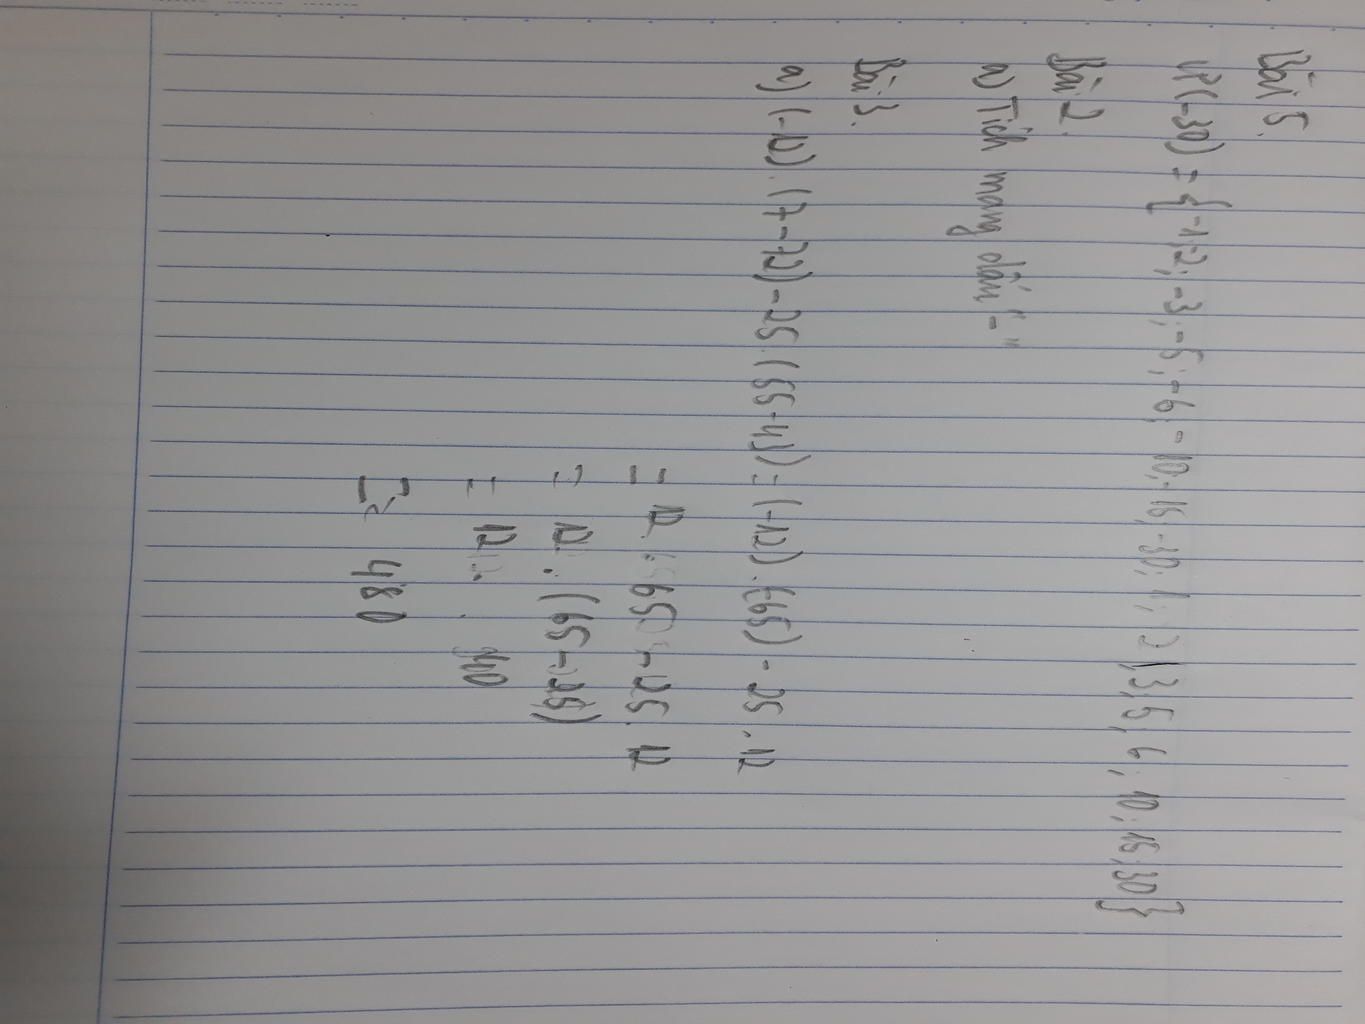 Bài 5.
Ư(-30) = {-1; 2; -3; -5; -6; -10; -15; -30; 1; 2; 3; 5; 6; 10; 15; 30}
Bài 2.
a) Tích mang dấu "-"
Bài 3.
a) (-12).(7-72)-25.(55-43) = (-12).(-65) - 25.12
= 12.65 - 25.12
= 12.(65-25)
= 12. 40
= 480